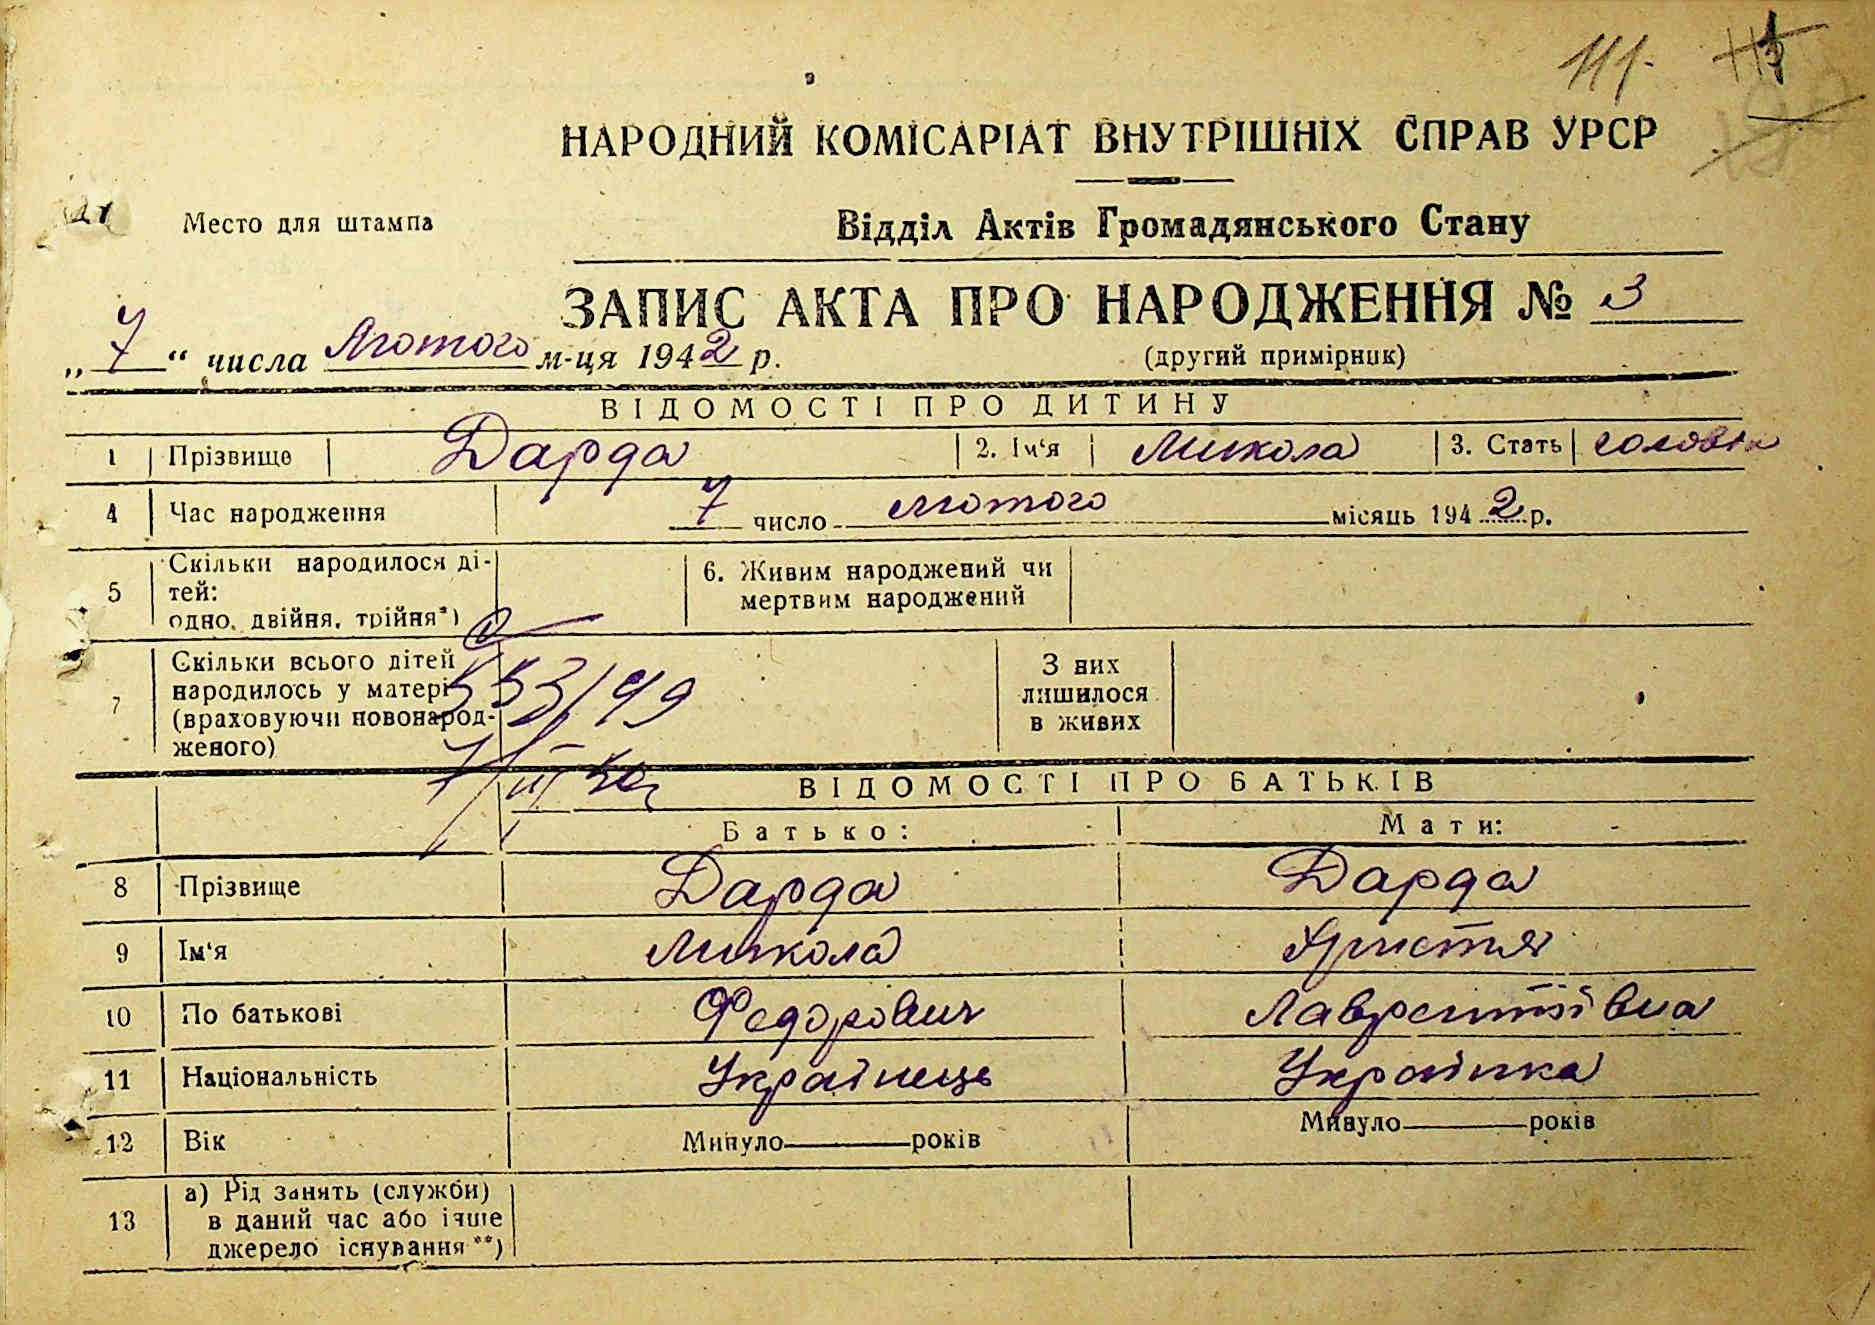 111.
НАРОДНИЙ КОМІСАРІАТ ВНУТРІШНІХ СПРАВ УРСР
Место для штампа
Відділ Актів Громадянського Стану
ЗАПИС АКТА ПРО НАРОДЖЕННЯ № 3
„ 7 “ числа Лютого м-ця 1942 р.
(другий примірник)
ВІДОМОСТІ ПРО ДИТИНУ
1 Прізвище Дарда 2. Ім‘я Микола 3. Стать чоловіч
4 Час народження 7 число лютого місяць 1942 р.
5 Скільки народилося ді-
тей:
одно, двійня, трійня*)
6. Живим народжений чи
мертвим народжений
7 Скільки всього дітей
народилось у матері
(враховуючи новонарод-
женого)
553/49
З них
лишилося
в живих
ВІДОМОСТІ ПРО БАТЬКІВ
Батько: Мати:
8 Прізвище Дарда Дарда
9 Ім‘я Микола Христя
10 По батькові Федорович Лаврентіївна
11 Національність Українець Українка
12 Вік Минуло років Минуло років
13 а) Рід занять (служби)
в даний час або інше
джерело існування **)